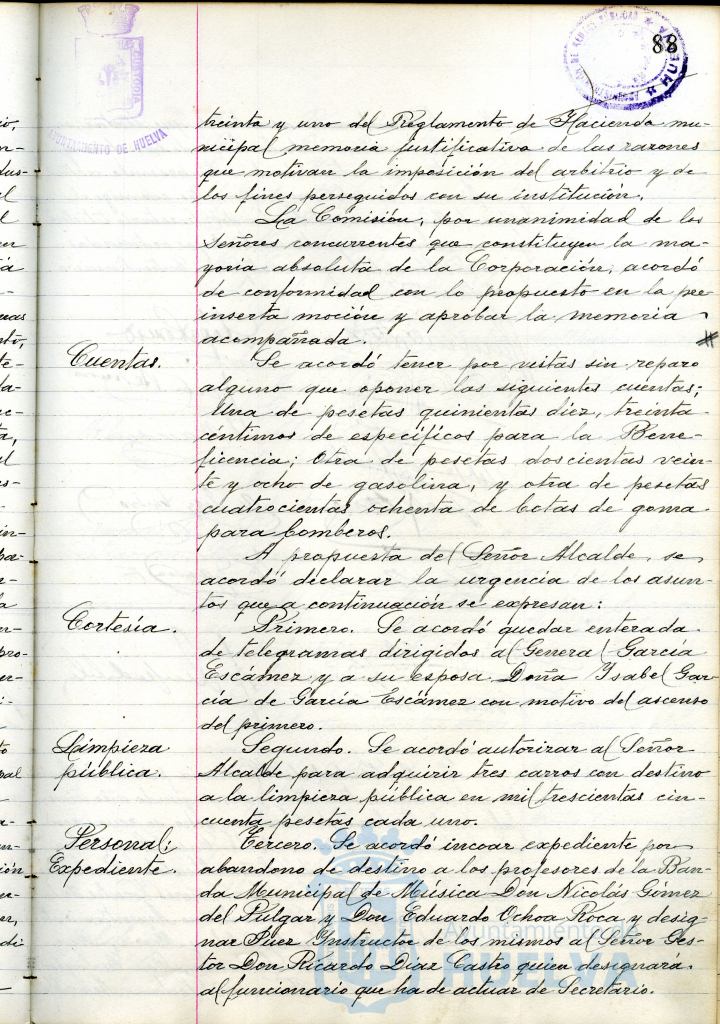 88
AYUNTAMIENTO DE HUELVA
HUELVA
treinta y uno del Reglamento de Hacienda mu-
nicipal memoria justificativa de las razones
que motivan la imposición del arbitrio y de
los fines perseguidos con su institución.
La Comisión, por unanimidad de los
Señores concurrentes que constituyen la ma-
yoría absoluta de la Corporación, acordó
de conformidad con lo propuesto en la pre
inserta moción y aprobar la memoria
acompañada.
Cuentas.
Se acordó tener por vistas sin reparo
alguno que oponer las siguientes cuentas;
Una de pesetas quinientas diez, treinta
céntimos de específicos para la Bene-
ficencia; Otra de pesetas doscientas vein-
te y ocho de gasolina, y otra de pesetas
cuatrocientas ochenta de botas de goma
para bomberos.
A propuesta del Señor Alcalde, se
acordó declarar la urgencia de los asun-
tos que a continuación se expresan:
Cortesía.
Primero. Se acordó quedar enterada
de telegramas dirigidos al General García
Escámez y a su esposa Doña Isabel Gar-
cía de García Escámez con motivo del ascenso
del primero.
Limpieza
pública.
Segundo. Se acordó autorizar al Señor
Alcalde para adquirir tres carros con destino
a la limpieza pública en mil trescientas cin-
cuenta pesetas cada uno.
Personal;
Expediente.
Tercero. Se acordó incoar expediente por
abandono de destino a los profesores de la Ban-
da Municipal de Música Don Nicolás Gómez
del Pulgar y Don Eduardo Ochoa Roca y desig-
nar Juez Instructor de los mismos al Señor Ges-
tor Don Ricardo Díaz Castro quien designará
al funcionario que ha de actuar de Secretario.
Ayuntamiento de
HUELVA